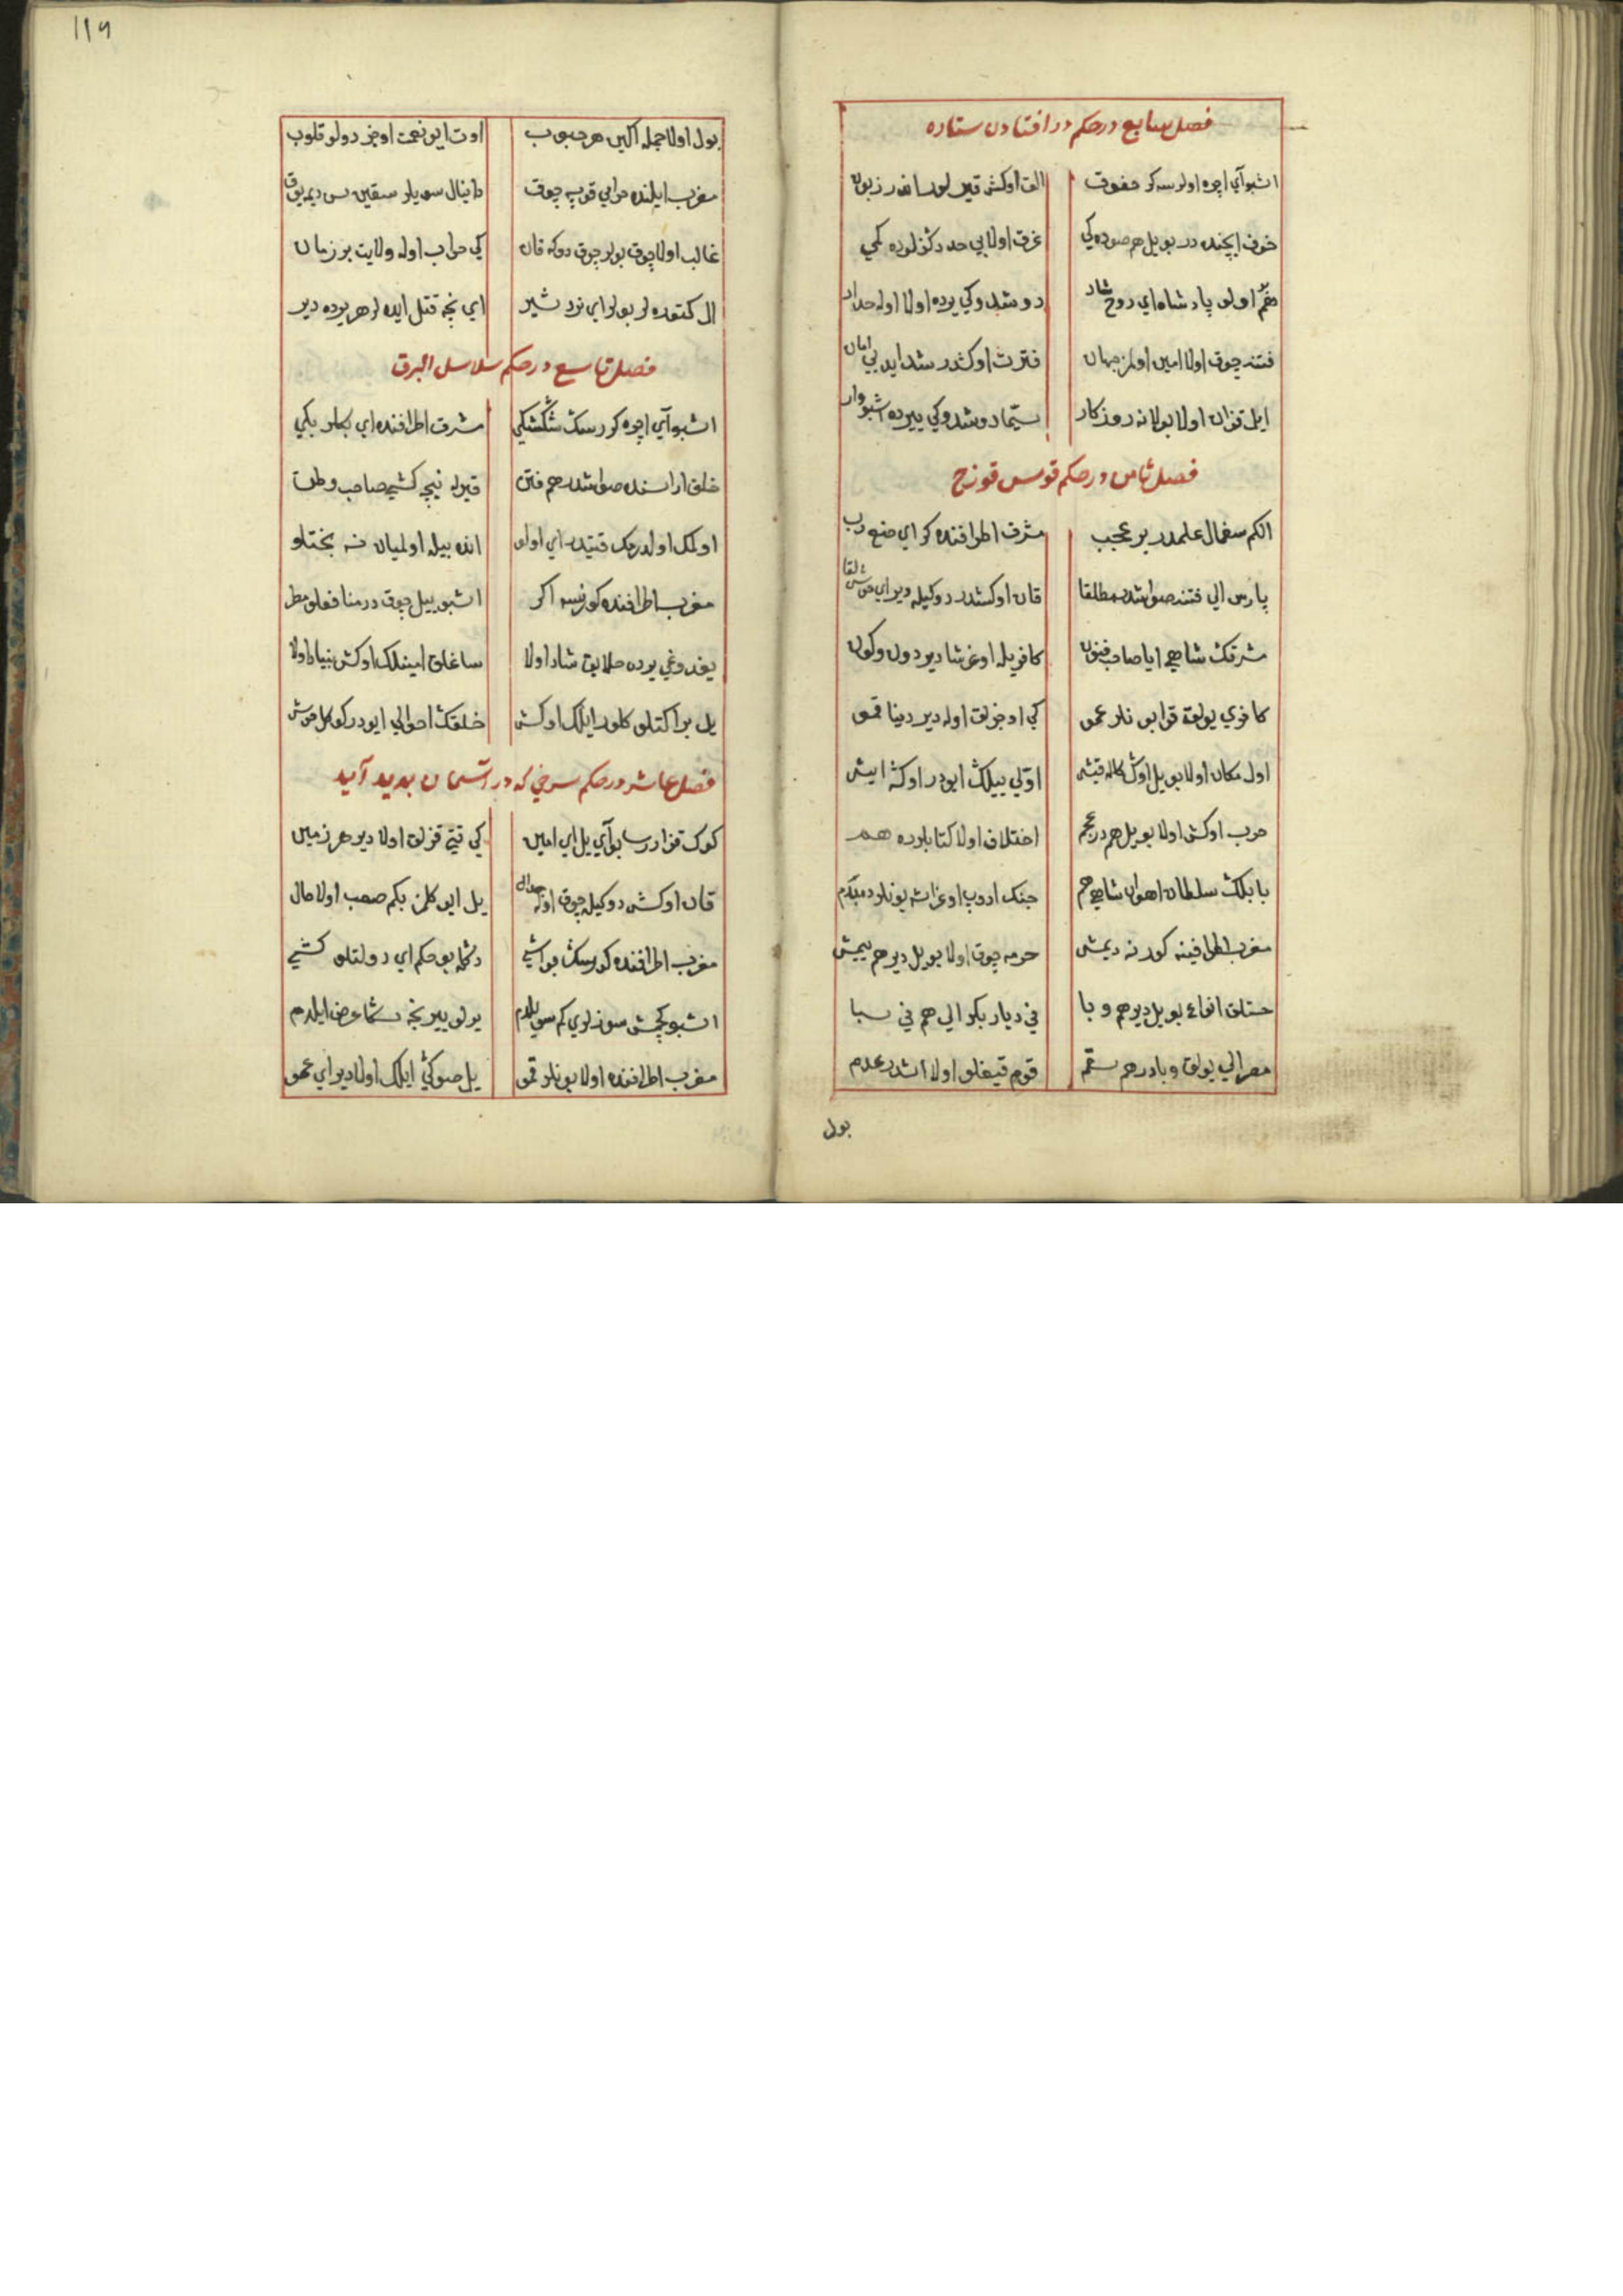 فصل سابع در حکم در افتادن ستاره
اشبو آي ایچره اولورسه کر خفوق الت اوکش قیر لور
خوف ایچنده در بو ییل هر صوده کي غرق اولا بي حد دکزلرده کمي
اولو پادشاه اي روح شاد دوشدوکي یرده اولا اوله
فتنه چوق اولا امین اولمز جهان فترت اوکشدر
ایل قزان اولا بولانه روزکار سیما دوشدوکي ییرده اشبو وار
فصل ثامن در حکم قوس قوزح
الکم سغمال علمدر بر عجب مشرق اطرافنده کر اي صنع رب
پارس الي فتنه صواشدر مطلقا قان اوکشدر دوکیله دیر اي خوش لقا
شرقک شاهي ایا صاحب فنون کافریله اوغرشا دیر دون و کون
کافري یولغه قوا بونلر عمو کي اوجزلق اوله دیر دنیا قمو
اول مکان اولا بو ییل اوکش قیش اوّلي ییلک ایودر اوکشه ایش
حرب اوکش اولا بو ییل هم در عجم اختلاف اولا کتابلرده هم
بابلک سلطان اهوان شاهي هم جنک ادوب اوغراشه بونلر دمبدم
مغرب اطرافینه کور نه دیمش خرمه چوق اولا بو ییل دیر هم ییمش
خستلق انواع بو ییل دیر هم وبا في دیار بکر الي هم في سبا
مصر الي یولق وبادر هم ستم قوم قیغلو اولا اشدر عدم
بول
١١٩
بول اولا جمله اکین هر حبوب اوت ایو نعمت اوجز دولو قلوب
مغرب ایلنده حرامي قوپه چوق دانیال سویلر سقین سن دیمه یوق
غالب اولا چوق بولر چوق دوکه قان کي خراب اوله ولایت بر زمان
ال کتوره لر بولر اي نرد شیر اي نجه قتل ایده لر هر یرده دیر
فصل تاسع در حکم سلاسل البرق
اشبو آي ایچره کورسک شکشکي مشرق اطرافنده اي بکلر بکي
خلق اراسنده صواشدر هم فتن قیریله نیجه کشي صاحب وطن
اولمک اولدرمک قتیدر اي اولو انده بیله اولمیان نه بختلو
مغرب اطرافنده کورنسه اکر اشبو ییل چوق در منافعلو مطر
یغدوغي یرده خلایق شاد اولا ساغلق امینلک اوکش بنیاد اولا
یل براکتلو کلور ایلک اوکش خلقک احوالي ایودر کوکل خوش
فصل عاشر در حکم سرخي که در آسمان بدید آید
کوک قزاررسا بو آي یل اي امین کي قیتي قزلق اولا دیر هر زمین
قان اوکش دوکیله چوق اوله جدال یل ایو کلمز بکم صعب اولا حال
مغرب اطرافنده کورسک بو ایشي دکله بو حکم اي دولتلو کشي
اشبو کچمش سوزلري کم سویلدم یرلو ییرنجه شکا عرض ایلدم
مغرب اطرافنده اولا بونلر قمو یل صوکي ایلک اولا دیر اي عمو